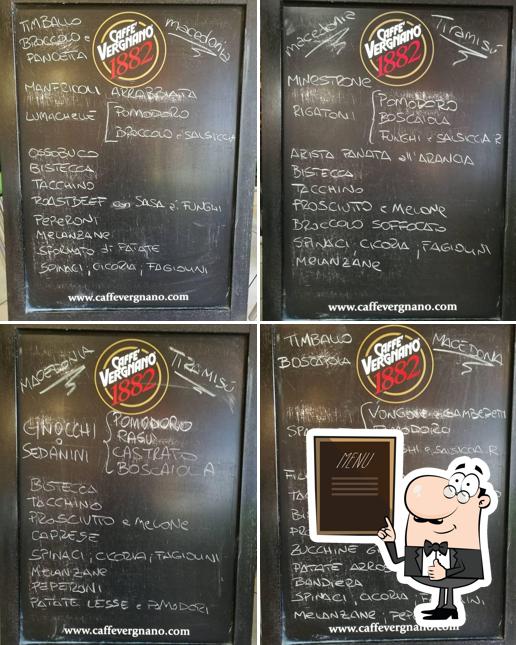 TIMBALLO
BROCCOLO e
PANCETTA
macedonia
CAFFÈ
VERGNANO
1882
MANFRICOLI ARRABBIATA
LUMACHELLE
POMODORO
BROCCOLO e SALSICCIA
OSSOBUCO
BISTECCA
TACCHINO
ROASTBEEF con SALSA di FUNGHI
PEPERONI
MELANZANE
SFORMATO di PATATE
SPINACI, CICORIA, FAGIOLINI
www.caffevergnano.com
macedonia
Tiramisù
CAFFÈ
VERGNANO
1882
MINESTRONE
RIGATONI
POMODORO
BOSCAIOLA
FUNGHI e SALSICCIA R
ARISTA PANATA all'ARANCIA
BISTECCA
TACCHINO
PROSCIUTTO e MELONE
BROCCOLO SOFFOCATO
SPINACI, CICORIA, FAGIOLINI
MELANZANE
www.caffevergnano.com
MACEDONIA
Tiramisù
CAFFÈ
VERGNANO
1882
GNOCCHI
o
SEDANINI
POMODORO
RAGU
CASTRATO
BOSCAIOLA
BISTECCA
TACCHINO
PROSCIUTTO e MELONE
CAPRESE
SPINACI, CICORIA, FAGIOLINI
MELANZANE
PEPERONI
PATATE LESSE e POMODORI
www.caffevergnano.com
TIMBALLO
BOSCAIOLA
MACEDONIA
CAFFÈ
VERGNANO
1882
VONGOLE e GAMBERETTI
MENU
ZUCCHINE
PATATE
BANDIERA
SPINACI, CICORIA
MELANZANE,
www.caffevergnano.com